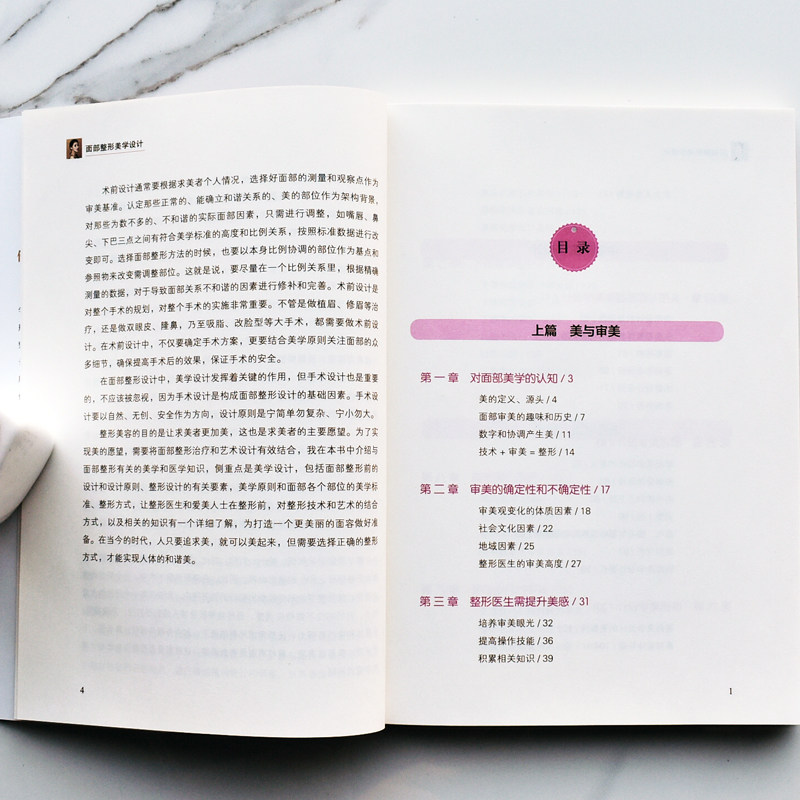 面部整形美学设计
术前设计通常要根据求美者个人情况，选择好面部的测量和观察点作为
审美基准。认定那些正常的、能确立和谐关系的、美的部位作为架构背景，
对那些为数不多的、不和谐的实际面部因素，只需进行调整，如嘴唇、鼻
尖、下巴三点之间有符合美学标准的高度和比例关系，按照标准数据进行改
变即可。选择面部整形方法的时候，也要以本身比例协调的部位作为基点和
参照物来改变需调整部位。这就是说，要尽量在一个比例关系里，根据精确
测量的数据，对于导致面部关系不和谐的因素进行修补和完善。术前设计是
对整个手术的规划，对整个手术的实施非常重要。不管是做植眉、修眉等治
疗，还是做双眼皮、隆鼻，乃至吸脂、改脸型等大手术，都需要做术前设
计。在术前设计中，不仅要确定手术方案，更要结合美学原则关注面部的众
多细节，确保提高手术后的效果，保证手术的安全。
在面部整形设计中，美学设计发挥着关键的作用，但手术设计也是重要
的，不应该被忽视，因为手术设计是构成面部整形设计的基础因素。手术设
计要以自然、无创、安全作为方向，设计原则是宁简单勿复杂、宁小勿大。
整形美容的目的是让求美者更加美，这也是求美者的主要愿望。为了实
现美的愿望，需要将面部整形治疗和艺术设计有效结合，我在本书中介绍与
面部整形有关的美学和医学知识，侧重点是美学设计，包括面部整形前的
设计和设计原则、整形设计的有关要素，美学原则和面部各个部位的美学标
准、整形方式，让整形医生和爱美人士在整形前，对整形技术和艺术的结合
方式，以及相关的知识有一个详细了解，为打造一个更美丽的面容做好准
备。在当今的时代，人只要追求美，就可以美起来，但需要选择正确的整形
方式，才能实现人体的和谐美。
4
目 录
上篇 美与审美
第一章 对面部美学的认知 / 3
美的定义、源头 / 4
面部审美的趣味和历史 / 7
数字和协调产生美 / 11
技术 + 审美 = 整形 / 14
第二章 审美的确定性和不确定性 / 17
审美观变化的体质因素 / 18
社会文化因素 / 22
地域因素 / 25
整形医生的审美高度 / 27
第三章 整形医生需提升美感 / 31
培养审美眼光 / 32
提高操作技能 / 36
积累相关知识 / 39
1